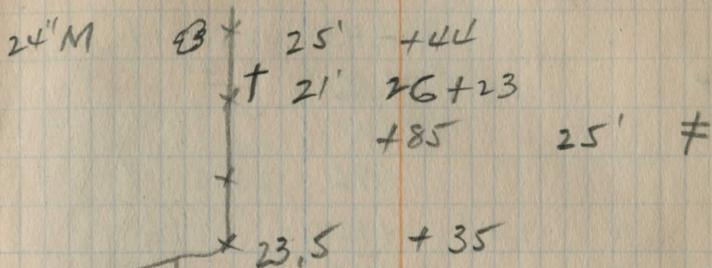 24" M 25' +44
† 21' 26+23
+85 25' ≠
23.5 +35